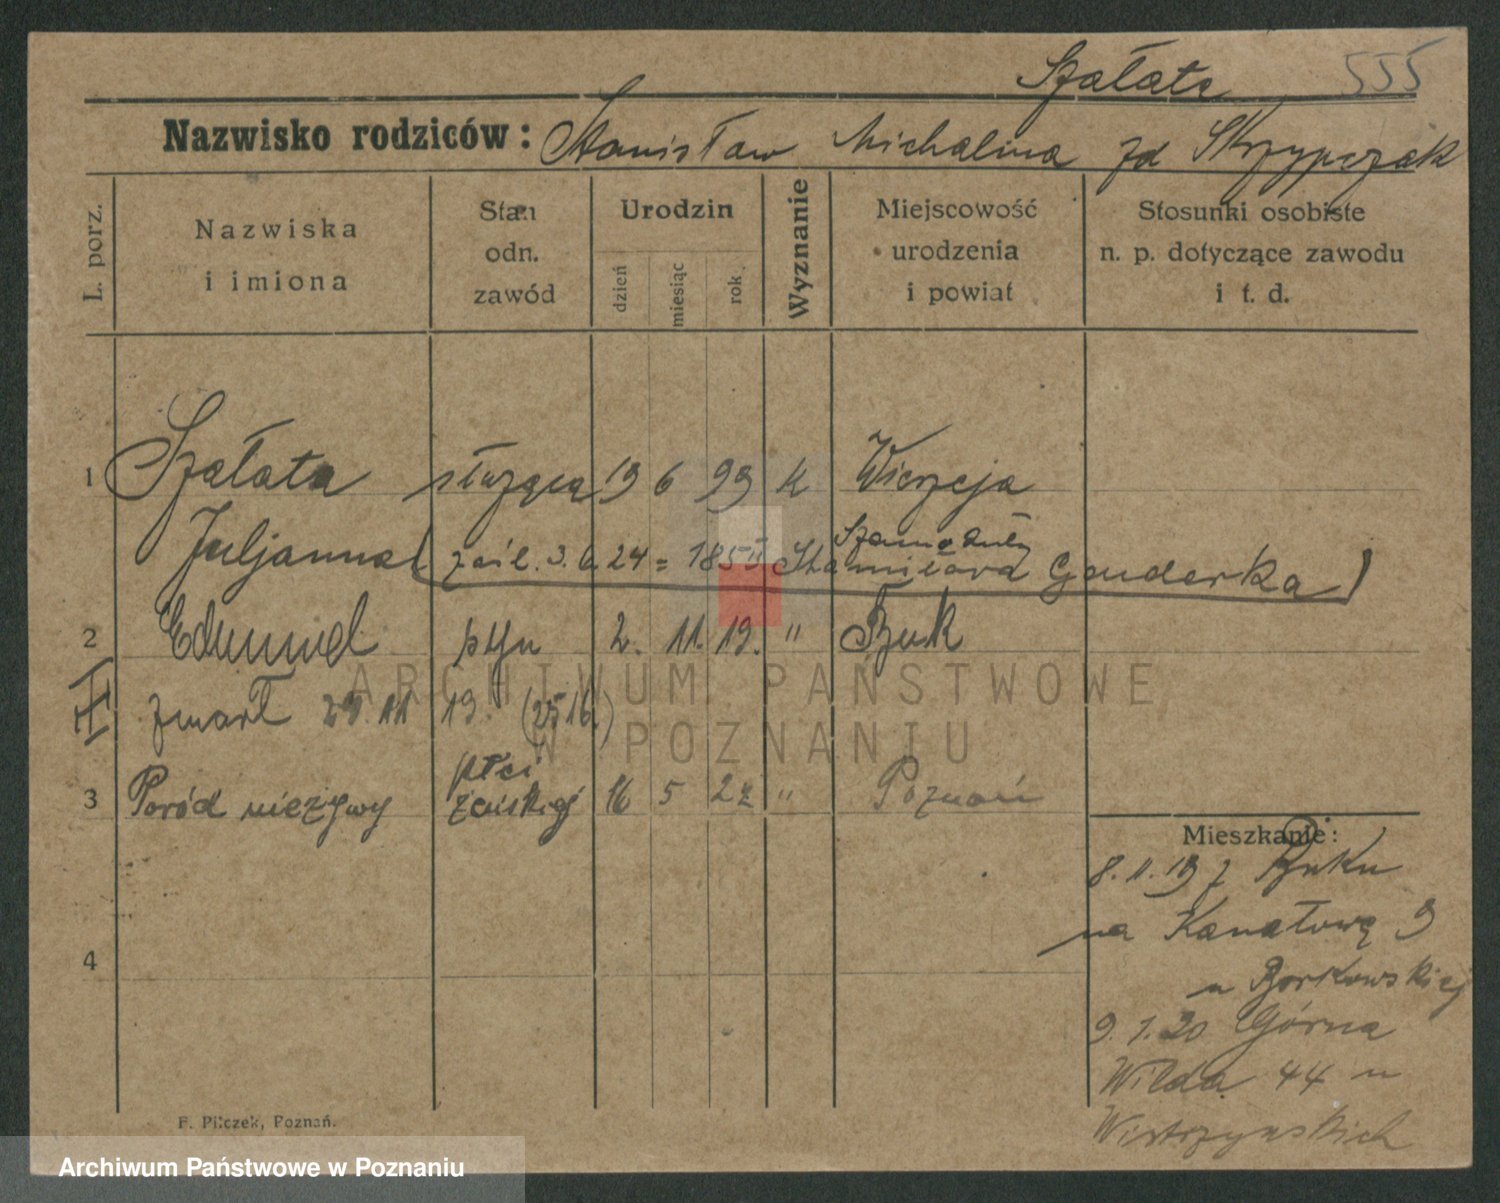 Szałata 555
Nazwisko rodziców: Stanisław Michalina zd Skrzypczak
L. porz.
Nazwiska
i imiona
Stan
odn.
zawód
Urodzin
dzień
miesiąc
rok
Wyznanie
Miejscowość
urodzenia
i powiat
Stosunki osobiste
n. p. dotyczące zawodu
i t. d.
1 Szałata służąca 19 6 99 k Wierzeja
Szamotuły
Juljanna (zaśl. 3.6.24 = 1853 Stanisława Genderka)
2 Edmund syn 2. 11. 19. " Buk
zmarł 29.11 19. (2516.)
płci
3 Poród nieżywy żeńskiej 16 5 22 " Poznań
Mieszkanie:
8.11.19 z Buku
na Kanałową 9
u Borkowskiej
9.1.20 Górna
Wilda 44 u
4
F. Pilczek, Poznań.
ARCHIWUM PAŃSTWOWE
W POZNANIU
Archiwum Państwowe w Poznaniu